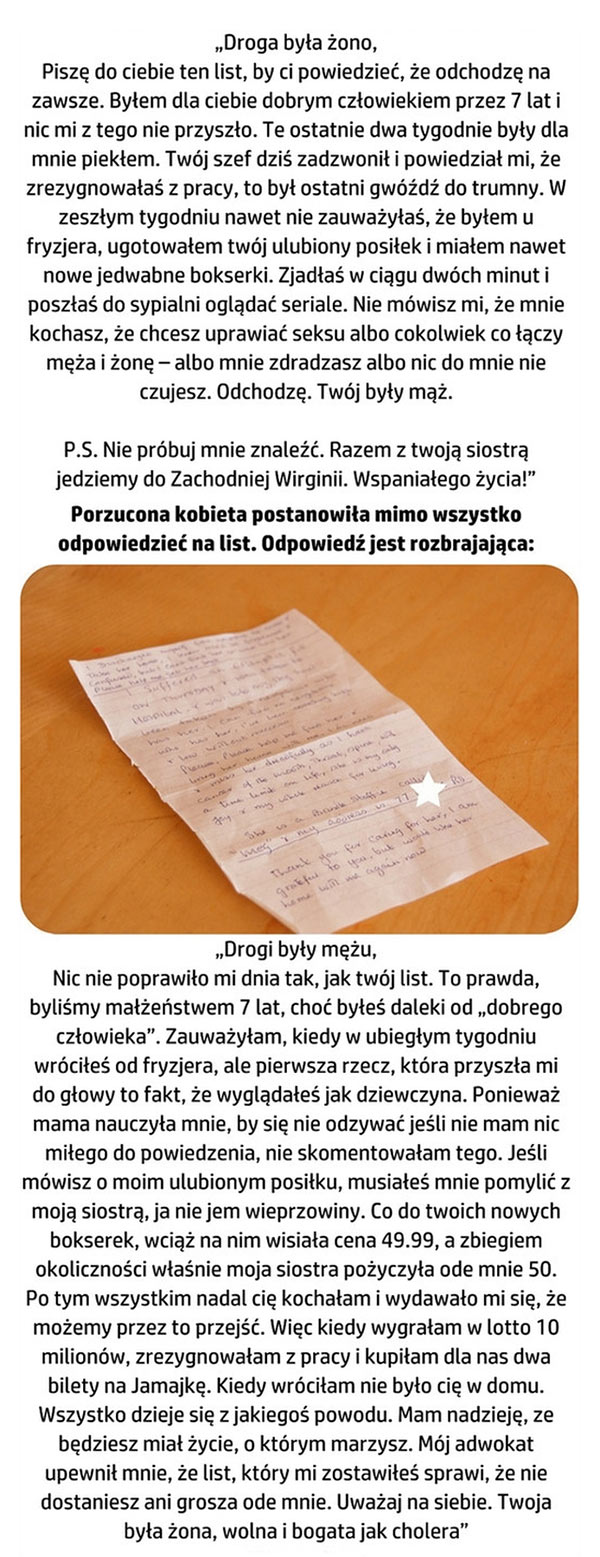 „Droga była żono,
Piszę do ciebie ten list, by ci powiedzieć, że odchodzę na
zawsze. Byłem dla ciebie dobrym człowiekiem przez 7 lat i
nic mi z tego nie przyszło. Te ostatnie dwa tygodnie były dla
mnie piekłem. Twój szef dziś zadzwonił i powiedział mi, że
zrezygnowałaś z pracy, to był ostatni gwóźdź do trumny. W
zeszłym tygodniu nawet nie zauważyłaś, że byłem u
fryzjera, ugotowałem twój ulubiony posiłek i miałem nawet
nowe jedwabne bokserki. Zjadłaś w ciągu dwóch minut i
poszłaś do sypialni oglądać seriale. Nie mówisz mi, że mnie
kochasz, że chcesz uprawiać seksu albo cokolwiek co łączy
męża i żonę – albo mnie zdradzasz albo nic do mnie nie
czujesz. Odchodzę. Twój były mąż.
P.S. Nie próbuj mnie znaleźć. Razem z twoją siostrą
jedziemy do Zachodniej Wirginii. Wspaniałego życia!”
Porzucona kobieta postanowiła mimo wszystko
odpowiedzieć na list. Odpowiedź jest rozbrajająca:
Hospital
Thank you for caring for her, I am
grateful to you, but would like her
home with me again now
„Drogi były mężu,
Nic nie poprawiło mi dnia tak, jak twój list. To prawda,
byliśmy małżeństwem 7 lat, choć byłeś daleki od „dobrego
człowieka”. Zauważyłam, kiedy w ubiegłym tygodniu
wróciłeś od fryzjera, ale pierwsza rzecz, która przyszła mi
do głowy to fakt, że wyglądałeś jak dziewczyna. Ponieważ
mama nauczyła mnie, by się nie odzywać jeśli nie mam nic
miłego do powiedzenia, nie skomentowałam tego. Jeśli
mówisz o moim ulubionym posiłku, musiałeś mnie pomylić z
moją siostrą, ja nie jem wieprzowiny. Co do twoich nowych
bokserek, wciąż na nim wisiała cena 49.99, a zbiegiem
okoliczności właśnie moja siostra pożyczyła ode mnie 50.
Po tym wszystkim nadal cię kochałam i wydawało mi się, że
możemy przez to przejść. Więc kiedy wygrałam w lotto 10
milionów, zrezygnowałam z pracy i kupiłam dla nas dwa
bilety na Jamajkę. Kiedy wróciłam nie było cię w domu.
Wszystko dzieje się z jakiegoś powodu. Mam nadzieję, ze
będziesz miał życie, o którym marzysz. Mój adwokat
upewnił mnie, że list, który mi zostawiłeś sprawi, że nie
dostaniesz ani grosza ode mnie. Uważaj na siebie. Twoja
była żona, wolna i bogata jak cholera”